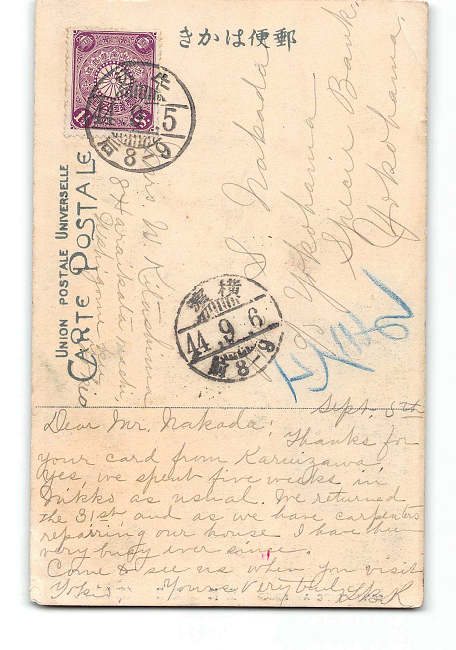 きかはಕ便郵
UNION POSTALE UNIVERSELLE
CARTE POSTALE
44.9.5
44.9.6
横濱
S. Nakada
Yokohama
Specie Bank,
Yokohama.
Mrs W. Kitashima
Sept. 5th
Dear Mr. Nakada;
Thanks for
your card from Karuizawa,
Yes, we spent five weeks in
Nikko as usual. We returned
the 31st, and as we have carpenters
repairing our house I have been
very busy ever since.
Come & see us when you visit
Yours very truly